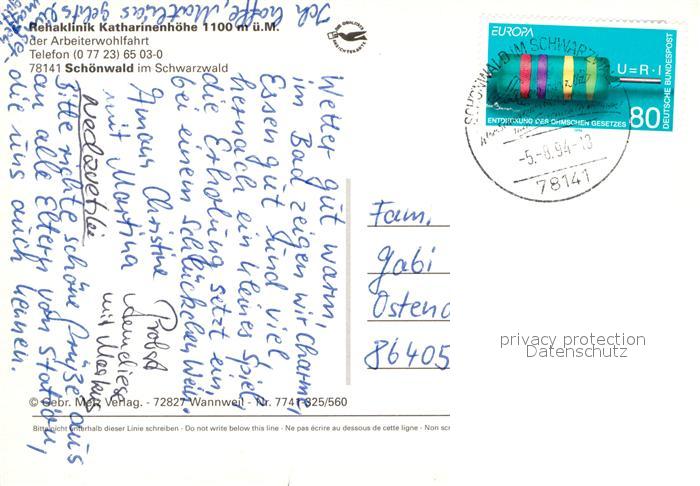 Rehaklinik Katharinenhöhe 1100 m ü.M.
der Arbeiterwohlfahrt
Telefon (0 77 23) 65 03-0
78141 Schönwald im Schwarzwald
Wetter gut warm,
im Bad zeigen wir Charme,
Essen gut und viel,
hernach ein kleines Spiel,
die Erholung setzt ein
bei einem Schlückchen Wein.
Amann Christine Probst
mit Martina Anneliese
mit Markus
Bitte richte schöne Grüße aus
an alle Eltern von Station,
die uns auch kennen.
Ich hoffe, Matthias geht's
EUROPA
U=R·I
ENTDECKUNG DES OHMSCHEN GESETZES
80
DEUTSCHE BUNDESPOST
SCHÖNWALD IM SCHWARZW
-5.-8.94-13
78141
Fam.
Gabi
Ostend
86405
privacy protection
Datenschutz
© Gebr. Metz Verlag. - 72827 Wannweil - Nr. 7741 325/560
Bitte nicht unterhalb dieser Linie schreiben - Do not write below this line - Ne pas écrire au dessous de cette ligne - Non scr